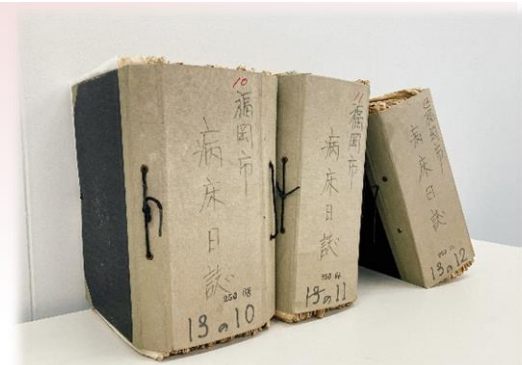 10
福岡市
病床日誌
13の10
11
福岡市
病床日誌
13の11
福岡市
病床日誌
13の12